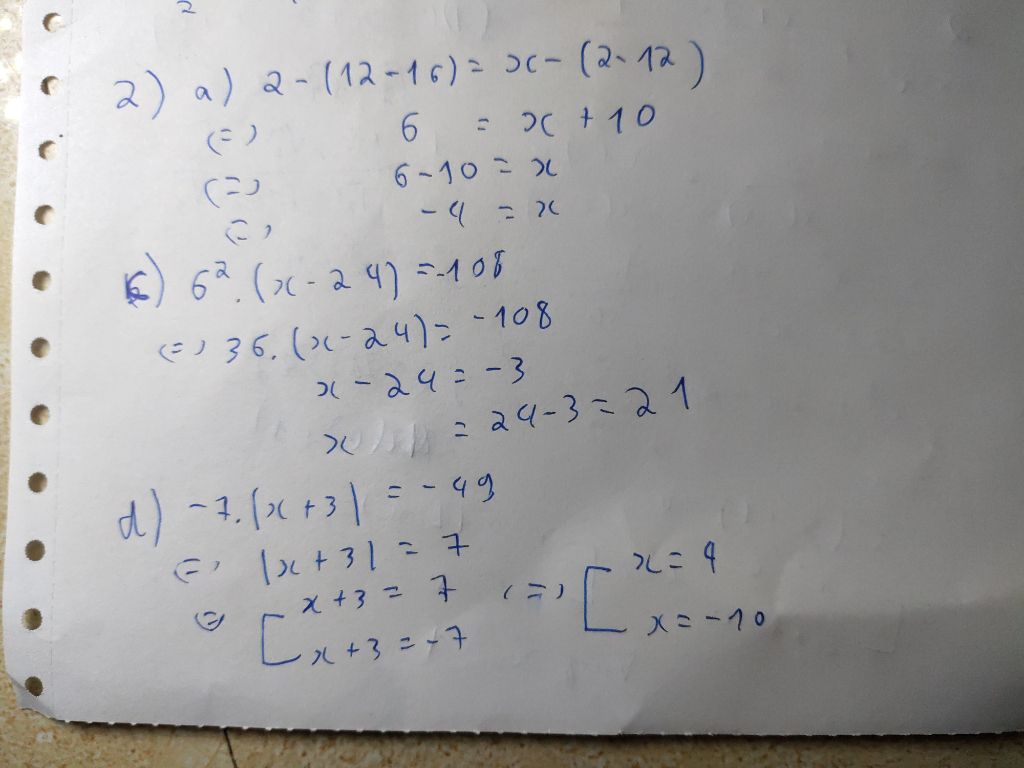 2) a) 2-(12-16) = x-(2-12)
(=) 6 = x+10
(=) 6-10 = x
(=) -4 = x
c) 6².(x-24) = -108
(=) 36.(x-24) = -108
x-24 = -3
x = 24-3 = 21
d) -7.|x+3| = -49
(=) |x+3| = 7
(=) [ x+3 = 7 (=) [ x = 4
x+3 = -7 x = -10